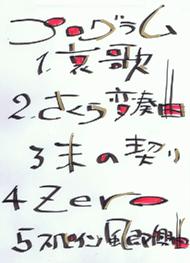 プログラム
1.哀歌
2.さくら変奏曲
3 末の契り
4 Zero
5 スペイン風即興曲